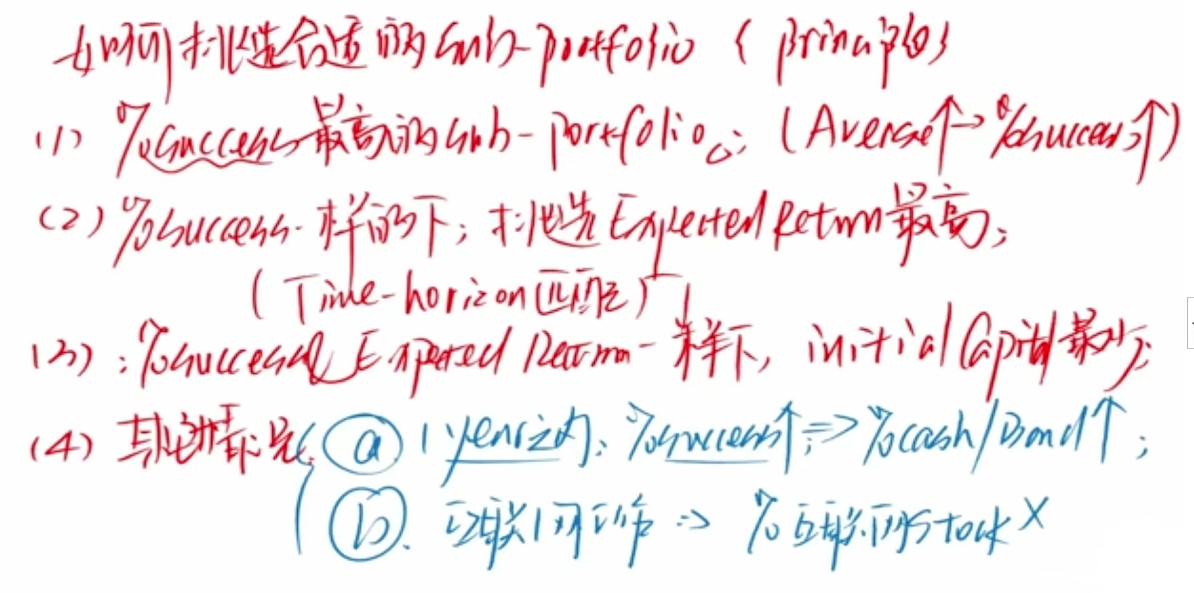 如何挑选合适的sub-portfolio (principle)
(1) %success最高的sub-portfolio; (Average↑→%success↑)
(2) %success一样的下; 挑选Expected Return最高;
(Time-horizon匹配)
(3): %success及Expected Return一样下, initial Capital最少;
(4) 其他情况: ⓐ 1year之内: %success↑; ⇒ %cash/Bond↑;
ⓑ. 互联网工作 ⇒ %互联网stock ×